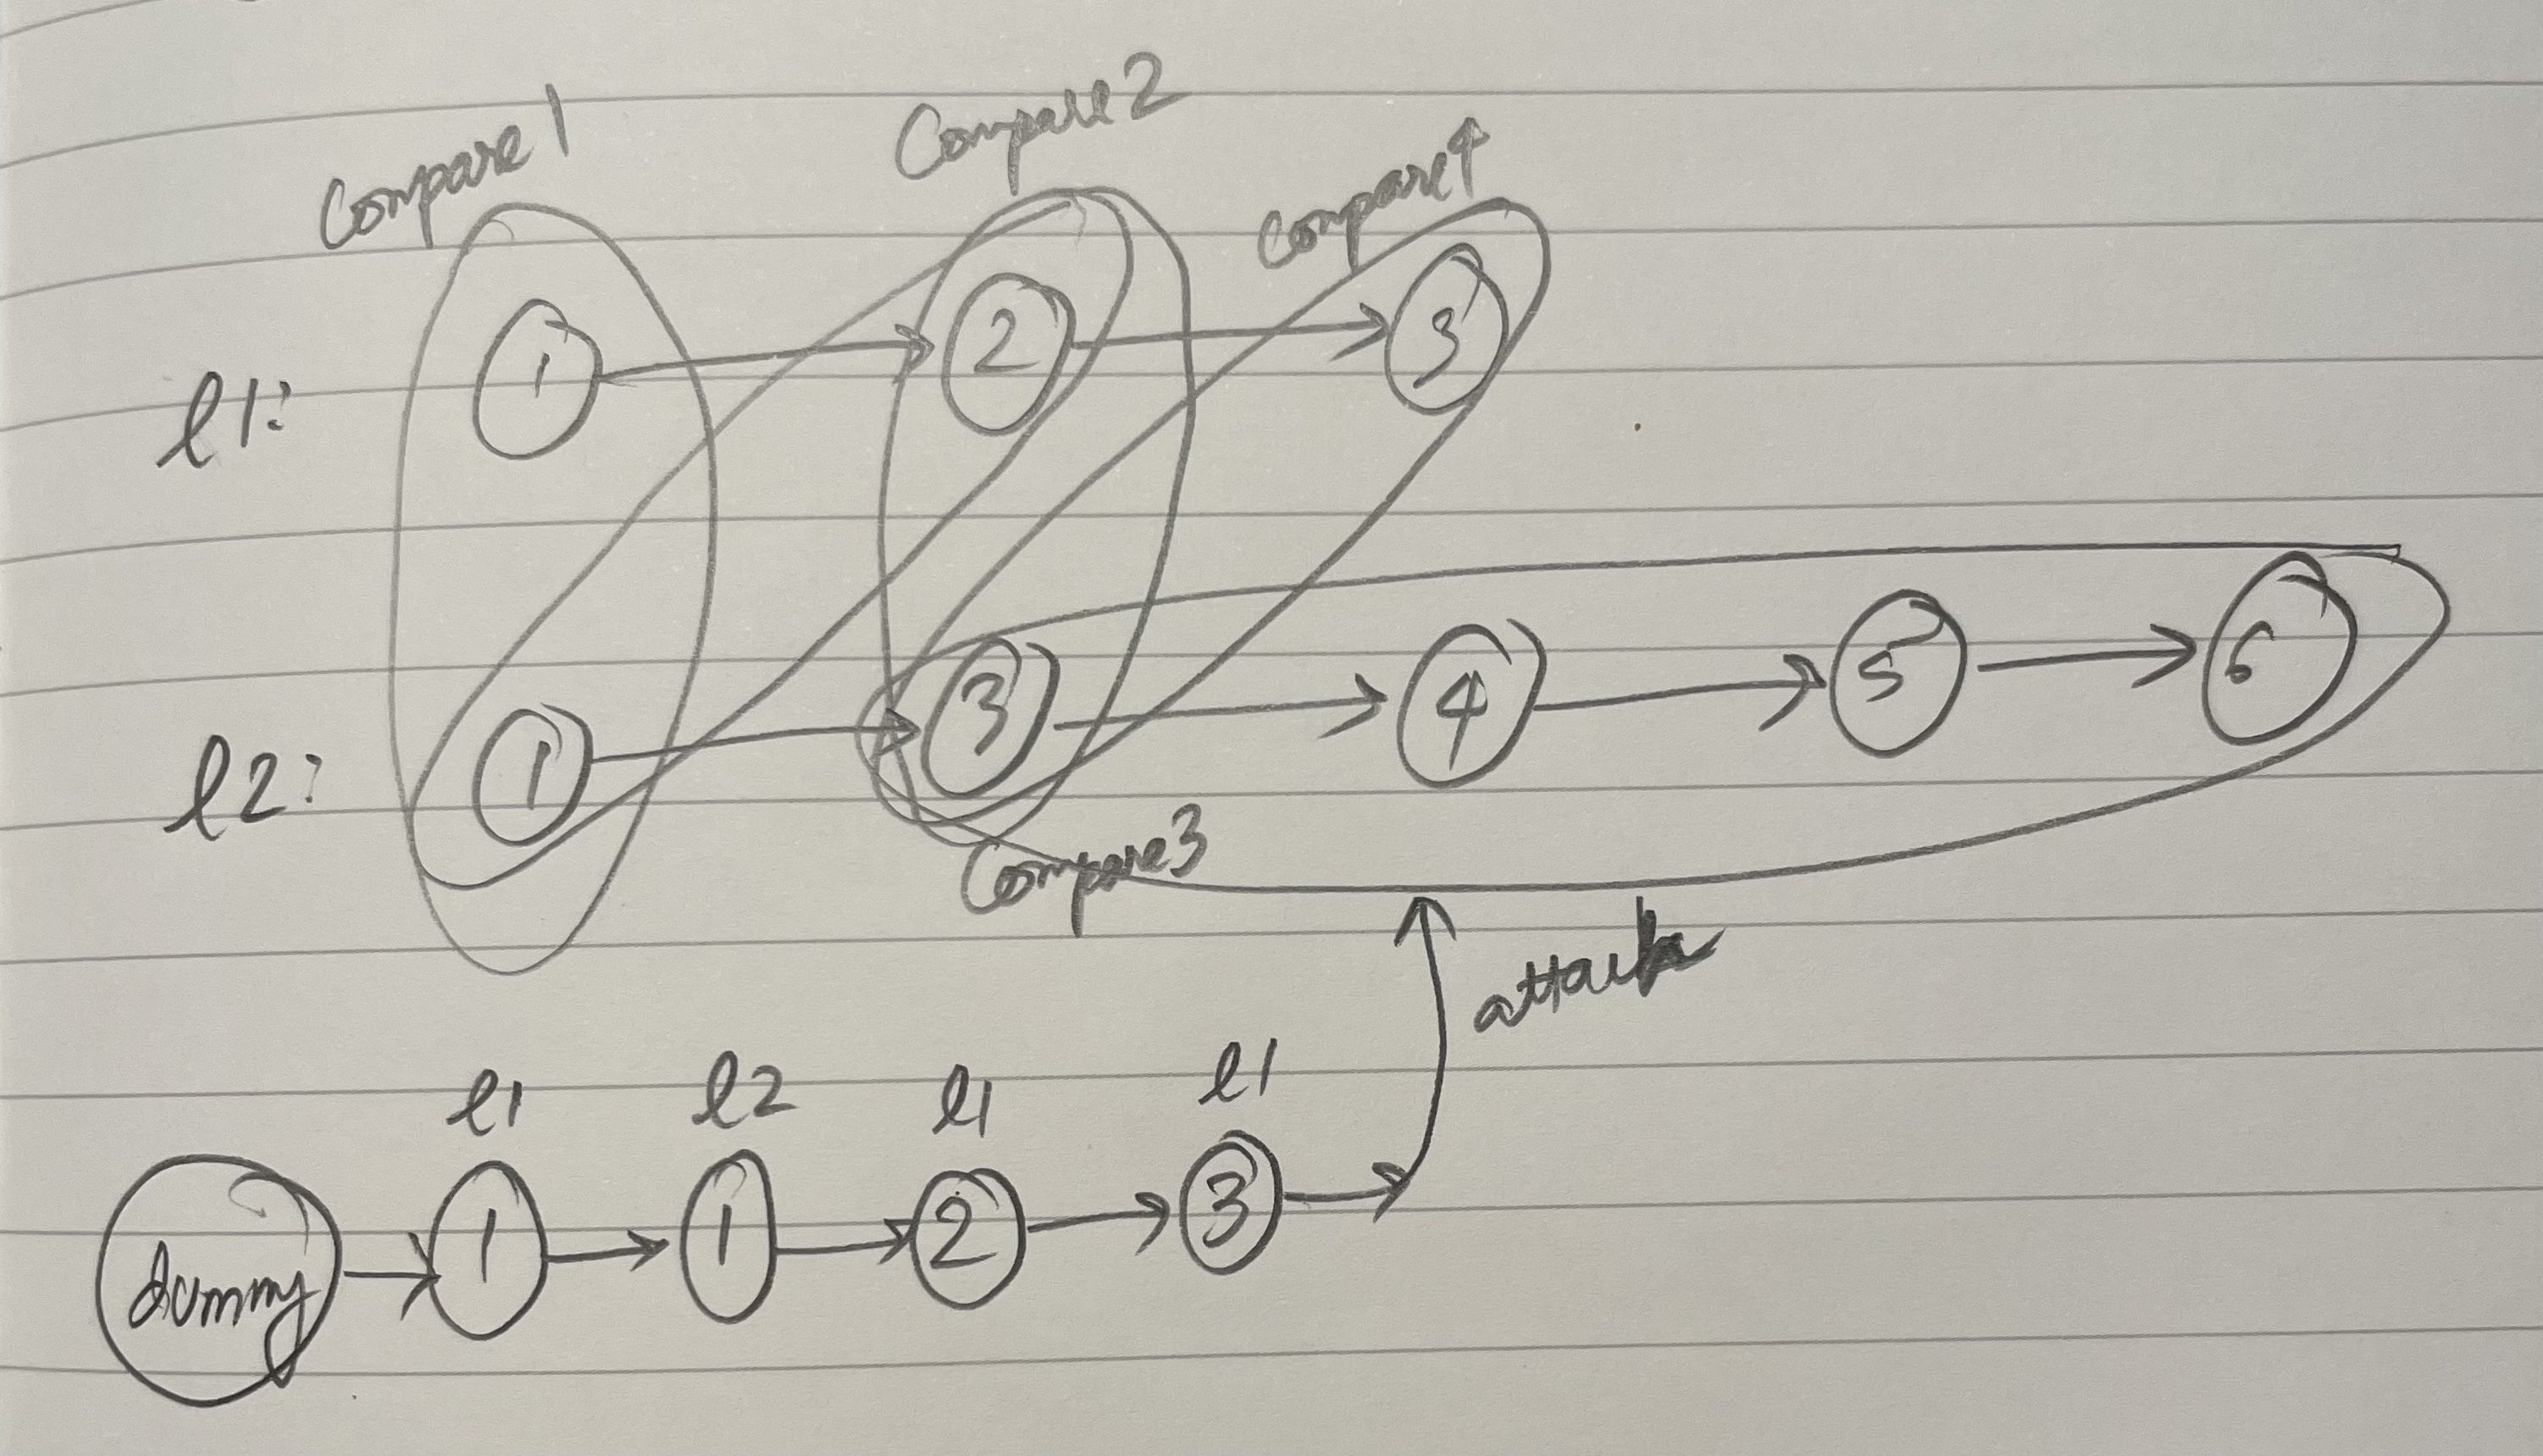 Compare 1
Compare 2
Compare 4
l1: 1 2 3
l2: 1 3 4 5 6
Compare 3
attach
l1 l2 l1 l1
dummy 1 1 2 3